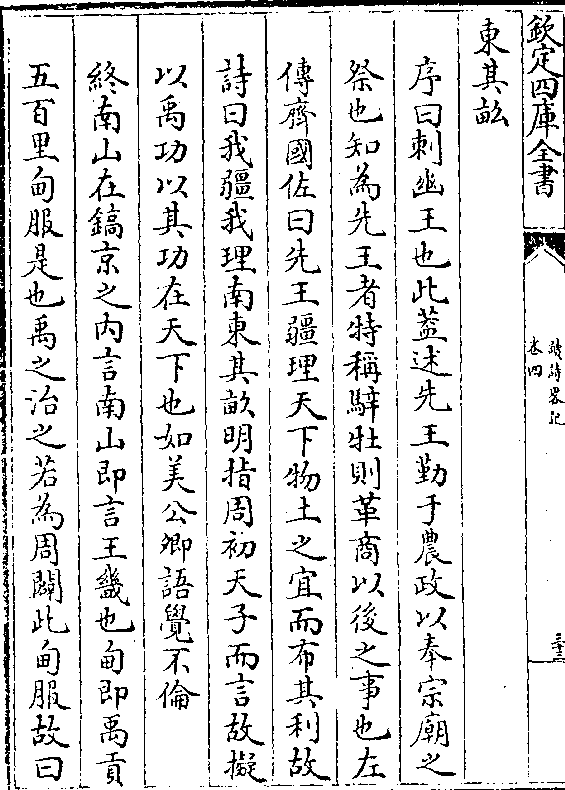 欽定四庫全書
讀詩畧記
卷四
三十三
東其畝
序曰刺幽王也此葢述先王勤于農政以奉宗廟之
祭也知為先王者特稱騂牡則革商以後之事也左
傳齊國佐曰先王疆理天下物土之宜而布其利故
詩曰我疆我理南東其畝明指周初天子而言故擬
以禹功以其功在天下也如美公卿語覺不倫
終南山在鎬京之内言南山即言王畿也甸即禹貢
五百里甸服是也禹之治之若為周闢此甸服故曰